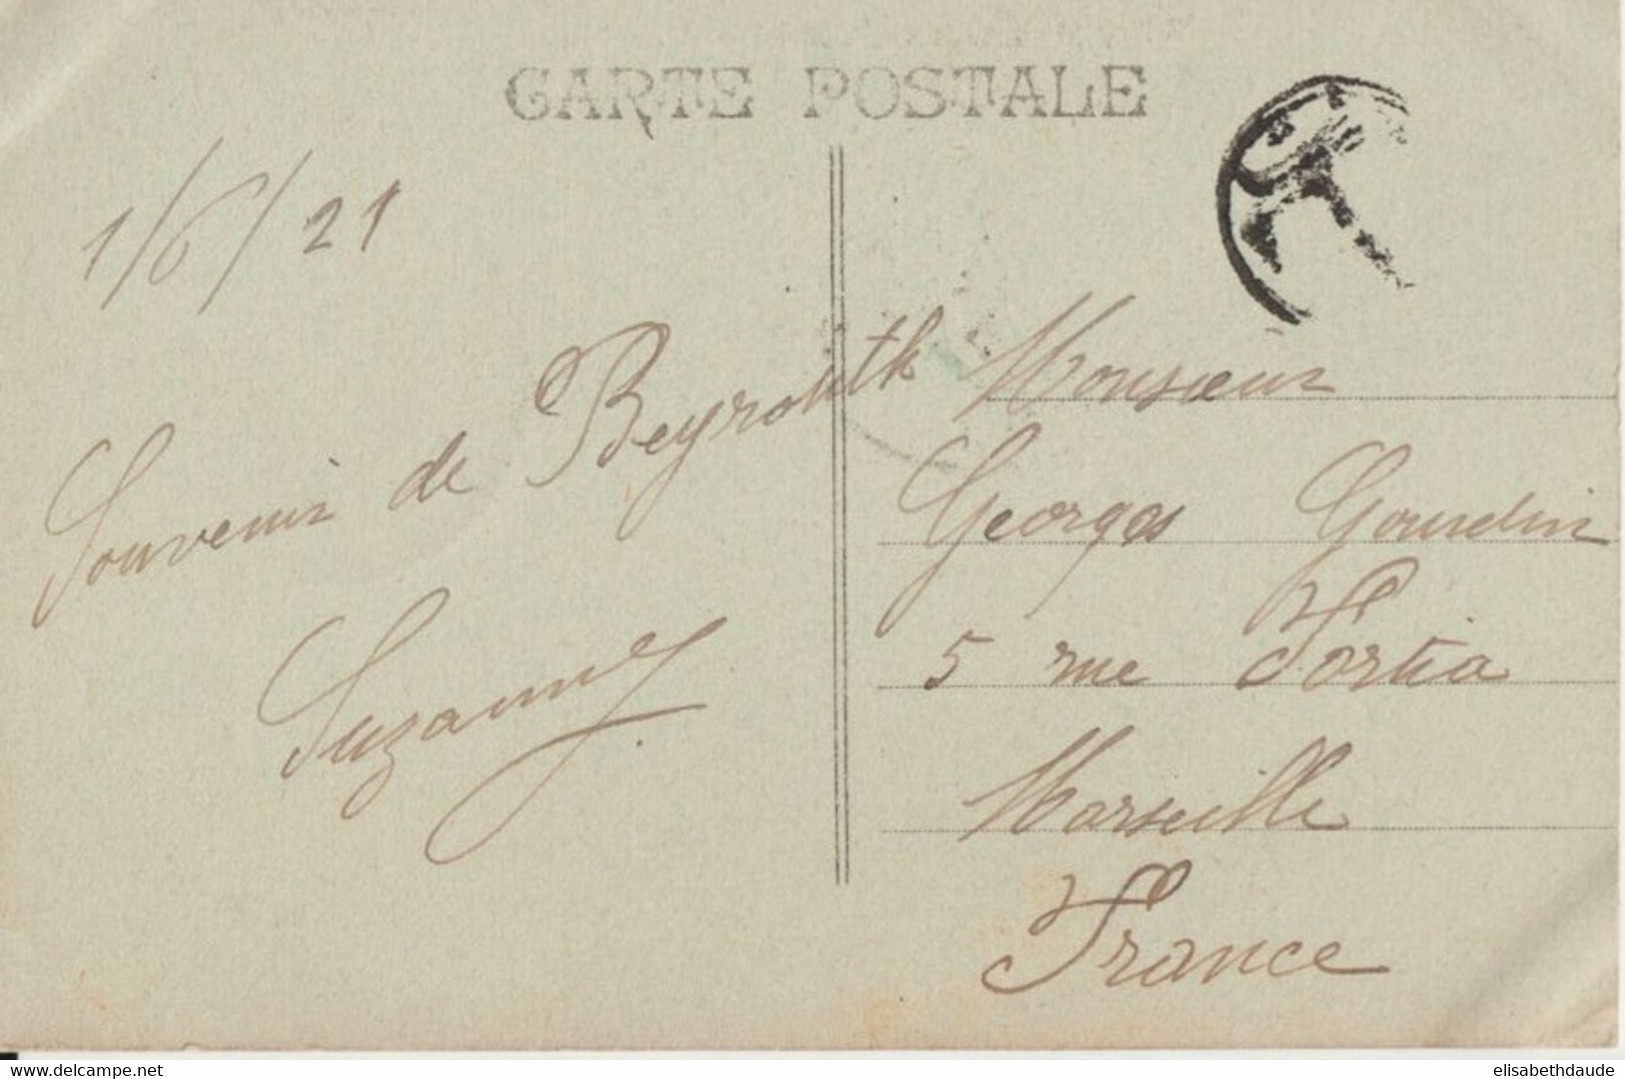 CARTE POSTALE
1/6/21
Souvenir de Beyrouth
Suzanne
Monsieur
Georges Gourdin
5 rue Fortia
Marseille
France
T
www.delcampe.net
elisabethdaude